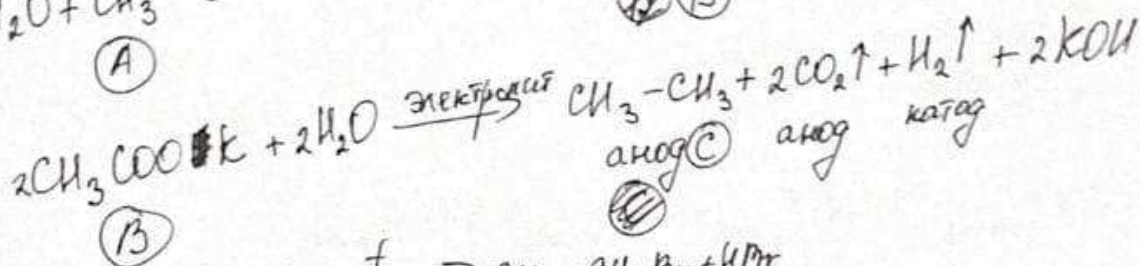 ₂O + CH₃
A
2CH₃COOK + 2H₂O электролит → CH₃-CH₃ + 2CO₂↑ + H₂↑ + 2KOH
анод C анод катод
B